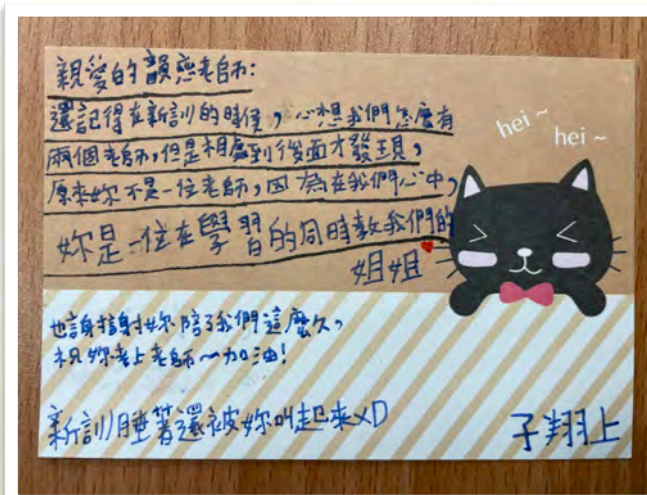 親愛的韻慈老師：
還記得在新訓的時候，心想我們怎麼有
兩個老師，但是相處到後面才發現，
原來妳不是一位老師，因為在我們心中，
妳是一位在學習的同時教我們的
姐姐
hei ~
hei ~
也謝謝妳陪了我們這麼久，
祝妳考上老師～加油！
新訓睡著還被妳叫起來XD
子翔上